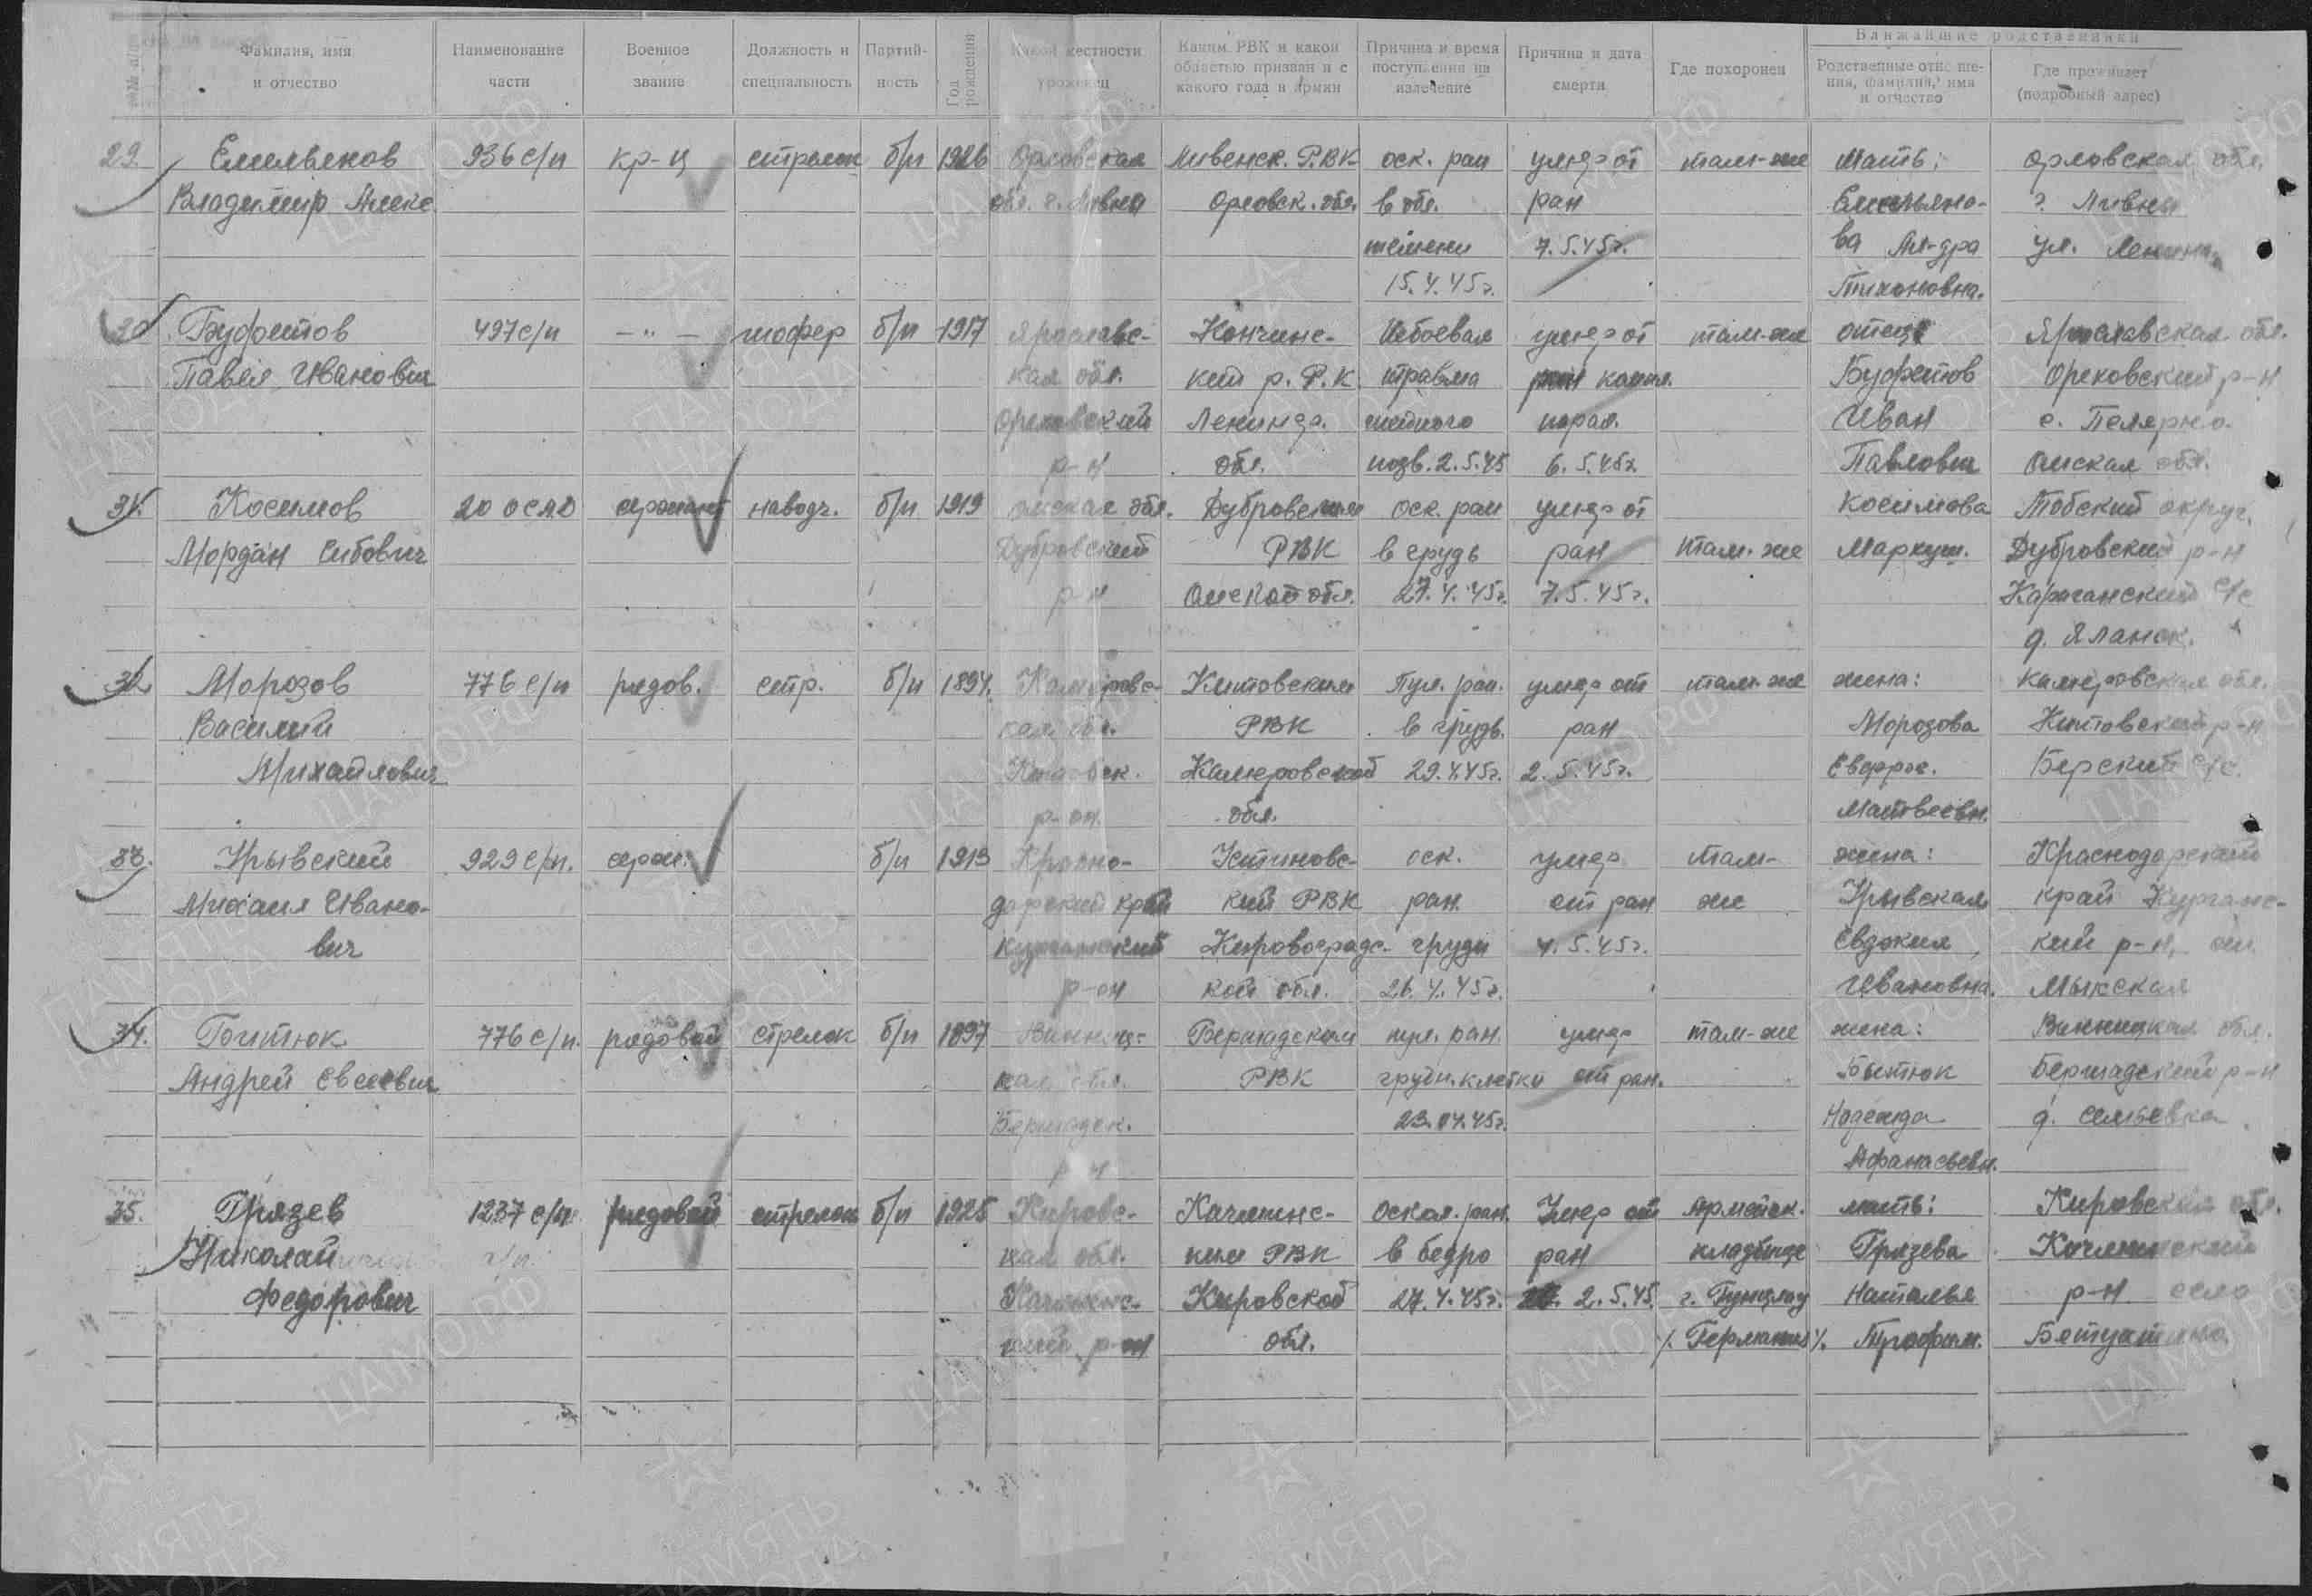 №№ п/п
Фамилия, имя и отчество
Наименование части
Военное звание
Должность и специальность
Партийность
Год рождения
Какой местности уроженец
Каким РВК и какой областью призван и с какого года в армии
Причина и время поступления на излечение
Причина и дата смерти
Где похоронен
Ближайшие родственники
Родственные отноше-
ния, фамилия, имя
и отчество
Где проживает
(подробный адрес)
29 Емельянов 936 с/п кр-ц стрелок б/п 1926 Орловская Ливенск. РВК оск. ран умер от там-же Мать: Орловская обл.
Владимир Алекс. обл. г. Ливны Орловск. обл. в обл. ран Емельяно- г. Ливны
темени 7.5.45г. ва Ал-дра ул. Ленина
15.4.45г. Тихоновна.
30 Буфетов 497 с/п —"— шофер б/п 1917 Ярославс- Небоевая умер от там-же отец Ярославская обл.
Павел Иванович кая обл. кий р.Р.К. травма Буфетов р-н
Ленингр. шейного парал. Иван с.
р-н обл. позв. 2.5.45 6.5.45г. Павлович Омская обл.
31. Косимов 20 осмд сержант наводч. б/п 1919 Омская обл. Дубровским оск. ран умер от Косимова Тобский округ,
Мордан Сибович Дубровский РВК в грудь ран там-же Маркуш. Дубровский р-н
р-н Омской обл. 27.4.45г. 7.5.45г. с/с
д. Яланск.
32. Морозов 776 с/п рядов. стр. б/п 1894. Кемеровс- Китовским Пул. ран. умер от там-же жена: Кемеровская обл.
Василий кая обл. РВК в грудь. ран Морозова Китовский р-н
Михайлович Кемеровской 29.4.45г. 2.5.45г. Берский с/с.
р-он. обл. Матвеевн.
33. Урывский 929 с/п. серж. б/п 1913 Красно- Устиновс- оск. умер там- жена: Краснодарский
Михаил Ивано- дарский край кий РВК ран. от ран же Урывская край Курганс-
вич Курганский Кировоградс- груди 4.5.45г. Евдокия кий р-н,
р-он кой обл. 26.4.45г. Ивановна.
34. 776 с/п. рядовой стрелок б/п 1897 Винниц- Бершадским пул. ран. умер там-же жена: Винницкая обл.
Андрей Евсеевич кая обл. РВК грудн. клетки от ран. Бершадский р-н
Бершадск. 23.04.45г. Надежда д.
р-н Афанасьевн.
35. Грязев 1237 с/п рядовой стрелок б/п 1925 Кировс- Оскол. ран. Умер от Армейск. мать: Кировская обл.
Николай кая обл. ким РВК в бедро ран кладбище Грязева
Федорович Кировской 27.4.45г. 2.5.45. г. Бунцлау Наталья р-н село
кий р-он обл. /Германия/. Трофим.